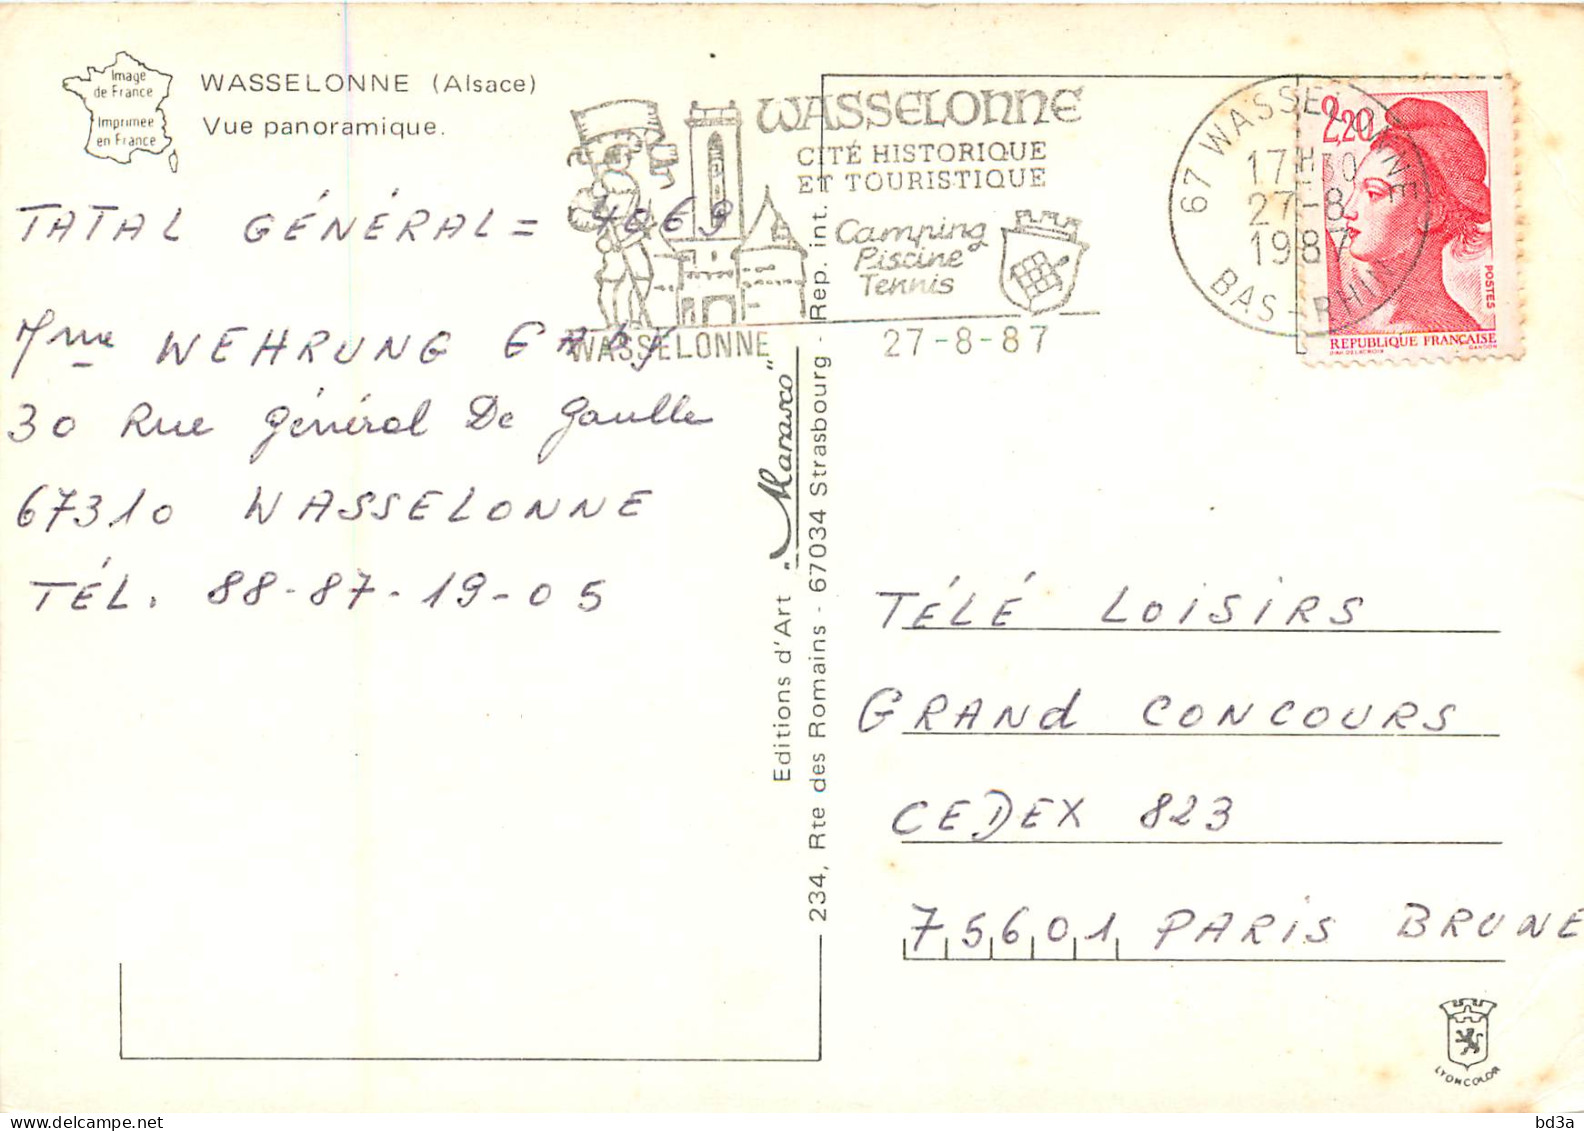 Image
de France
Imprimée
en France
WASSELONNE (Alsace)
Vue panoramique.
TATAL GÉNÉRAL = 4069
Mme WEHRUNG GABY
30 Rue Général De Gaulle
67310 WASSELONNE
TÉL. 88-87-19-05
WASSELONNE
CITÉ HISTORIQUE
ET TOURISTIQUE
Camping
Piscine
Tennis
WASSELONNE 27-8-87
67 WASSELONNE
17H30
27-8
1987
BAS-RHIN
2,20
POSTES
REPUBLIQUE FRANÇAISE
Editions d'Art "Marasco"
234, Rte des Romains - 67034 Strasbourg - Rep. int.
TÉLÉ LOISIRS
GRANd CONCOURS
CEDEX 823
75601 PARIS BRUNE
LYONCOLOR
bd3a